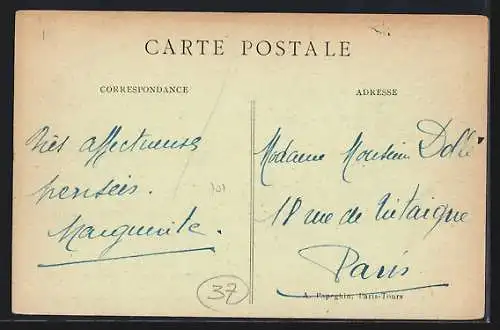 CARTE POSTALE
CORRESPONDANCE
Très affectueuses
pensées.
Marguerite.
101
37
ADRESSE
Madame Monsieur
18 rue de
Paris
A. Papeghin, Paris-Tours